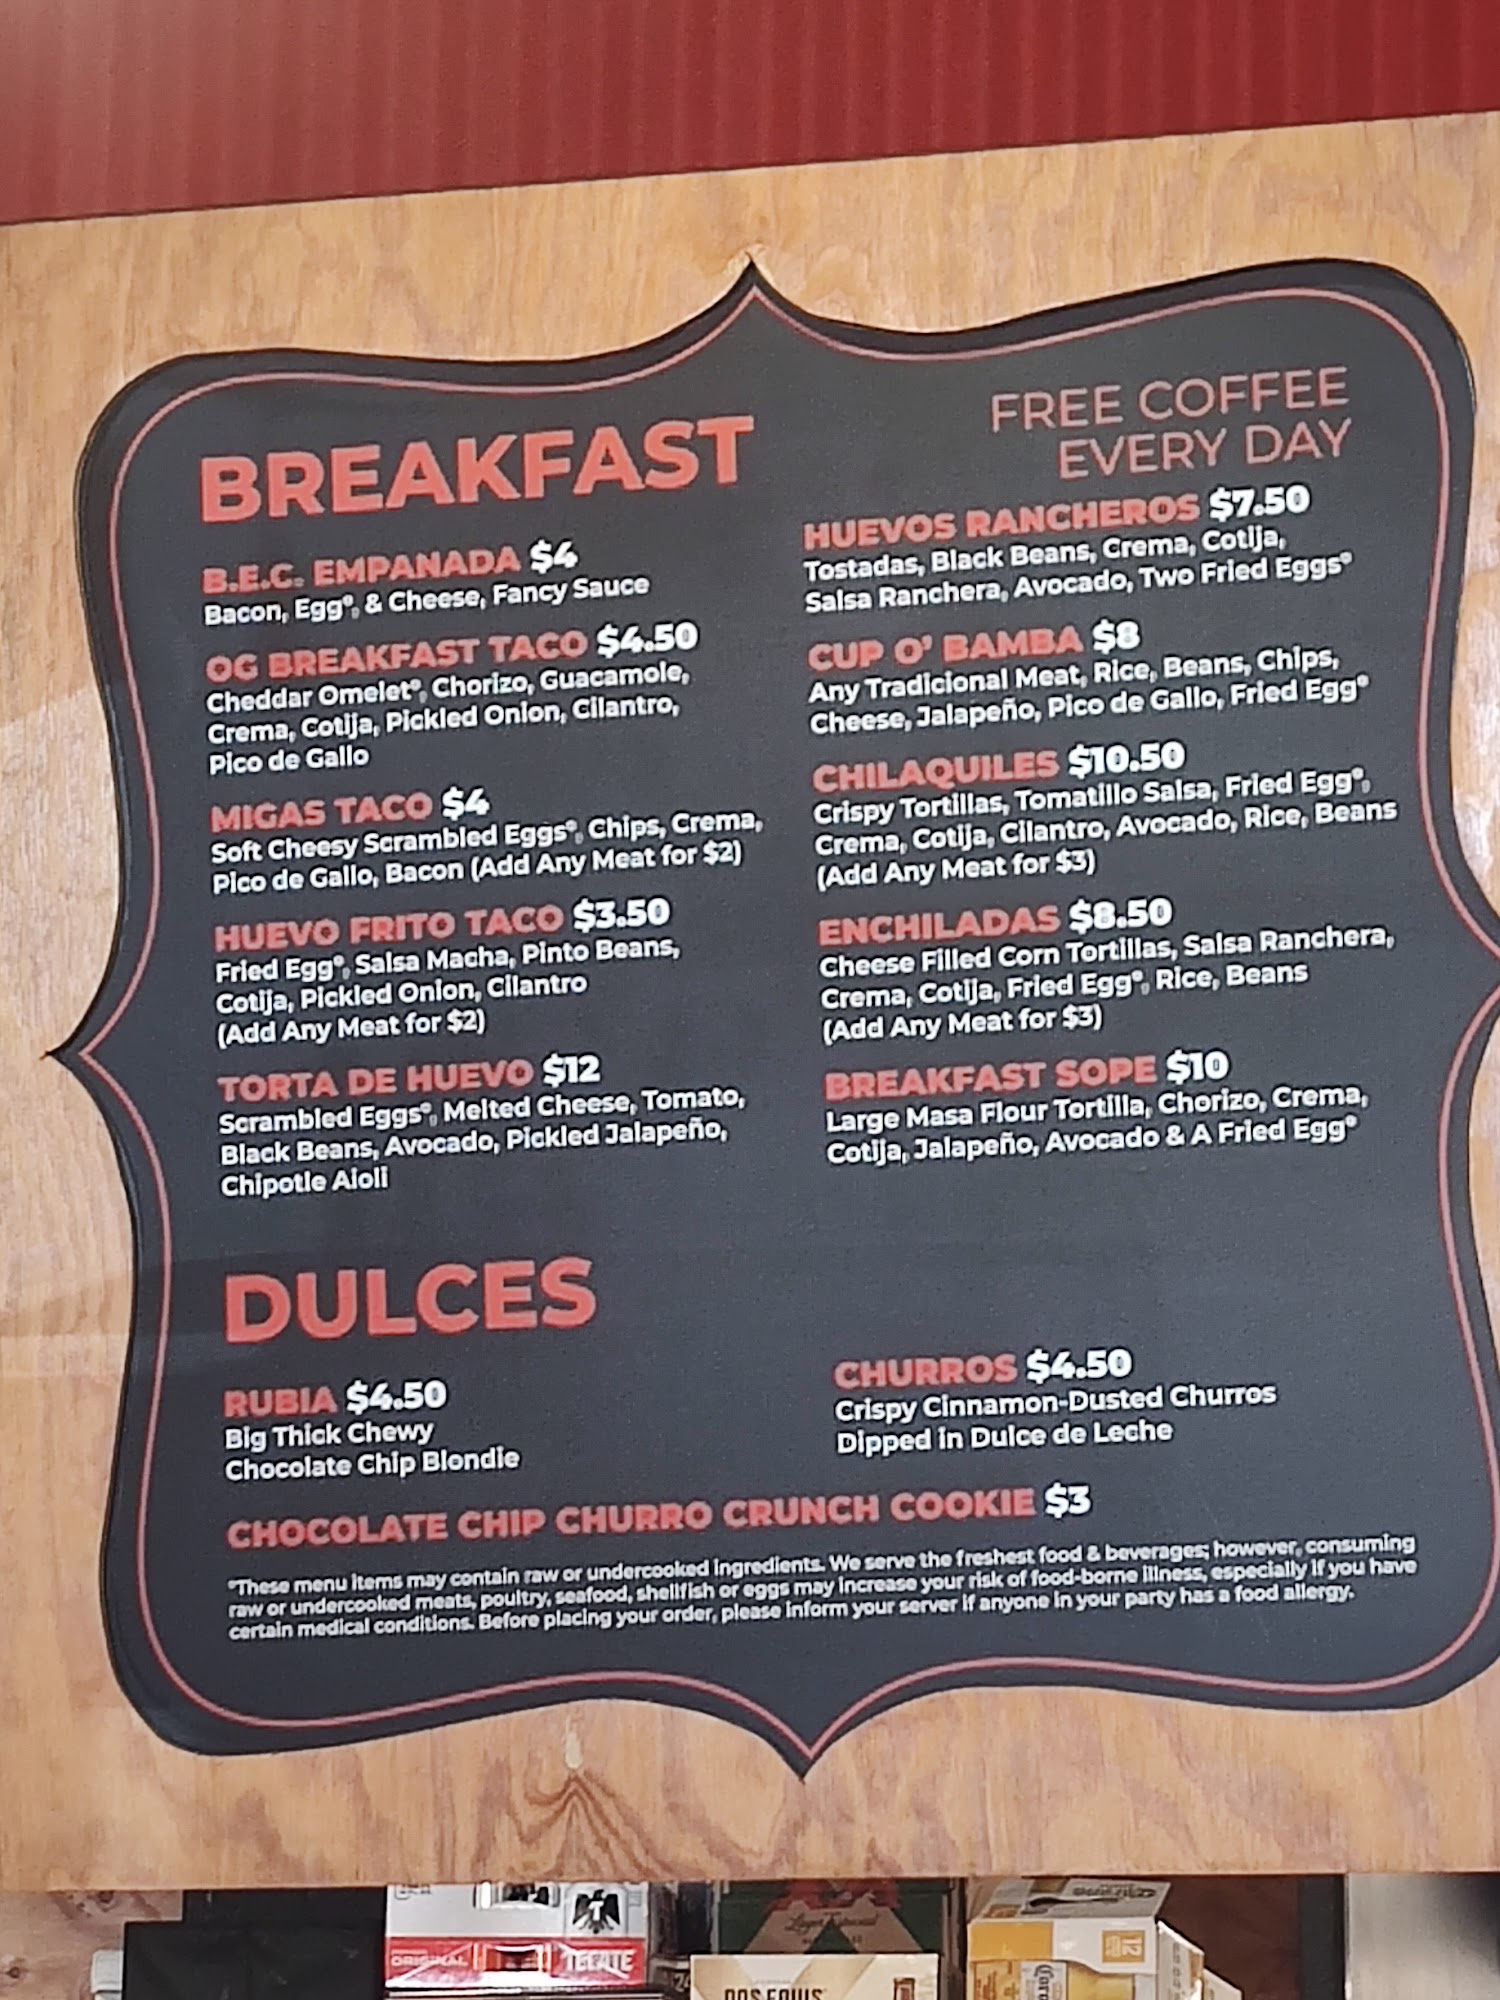 BREAKFAST
B.E.C. EMPANADA $4
Bacon, Egg*, & Cheese, Fancy Sauce
OG BREAKFAST TACO $4.50
Cheddar Omelet*, Chorizo, Guacamole,
Crema, Cotija, Pickled Onion, Cilantro,
Pico de Gallo
MIGAS TACO $4
Soft Cheesy Scrambled Eggs*, Chips, Crema,
Pico de Gallo, Bacon (Add Any Meat for $2)
HUEVO FRITO TACO $3.50
Fried Egg*, Salsa Macha, Pinto Beans,
Cotija, Pickled Onion, Cilantro
(Add Any Meat for $2)
TORTA DE HUEVO $12
Scrambled Eggs*, Melted Cheese, Tomato,
Black Beans, Avocado, Pickled Jalapeño,
Chipotle Aioli
FREE COFFEE
EVERY DAY
HUEVOS RANCHEROS $7.50
Tostadas, Black Beans, Crema, Cotija,
Salsa Ranchera, Avocado, Two Fried Eggs*
CUP O' BAMBA $8
Any Tradicional Meat, Rice, Beans, Chips,
Cheese, Jalapeño, Pico de Gallo, Fried Egg*
CHILAQUILES $10.50
Crispy Tortillas, Tomatillo Salsa, Fried Egg*,
Crema, Cotija, Cilantro, Avocado, Rice, Beans
(Add Any Meat for $3)
ENCHILADAS $8.50
Cheese Filled Corn Tortillas, Salsa Ranchera,
Crema, Cotija, Fried Egg*, Rice, Beans
(Add Any Meat for $3)
BREAKFAST SOPE $10
Large Masa Flour Tortilla, Chorizo, Crema,
Cotija, Jalapeño, Avocado & A Fried Egg*
DULCES
RUBIA $4.50
Big Thick Chewy
Chocolate Chip Blondie
CHURROS $4.50
Crispy Cinnamon-Dusted Churros
Dipped in Dulce de Leche
CHOCOLATE CHIP CHURRO CRUNCH COOKIE $3
*These menu items may contain raw or undercooked ingredients. We serve the freshest food & beverages; however, consuming
raw or undercooked meats, poultry, seafood, shellfish or eggs may increase your risk of food-borne illness, especially if you have
certain medical conditions. Before placing your order, please inform your server if anyone in your party has a food allergy.
ORIGINAL TECATE
Lager Especial
DOS EQUIS
12